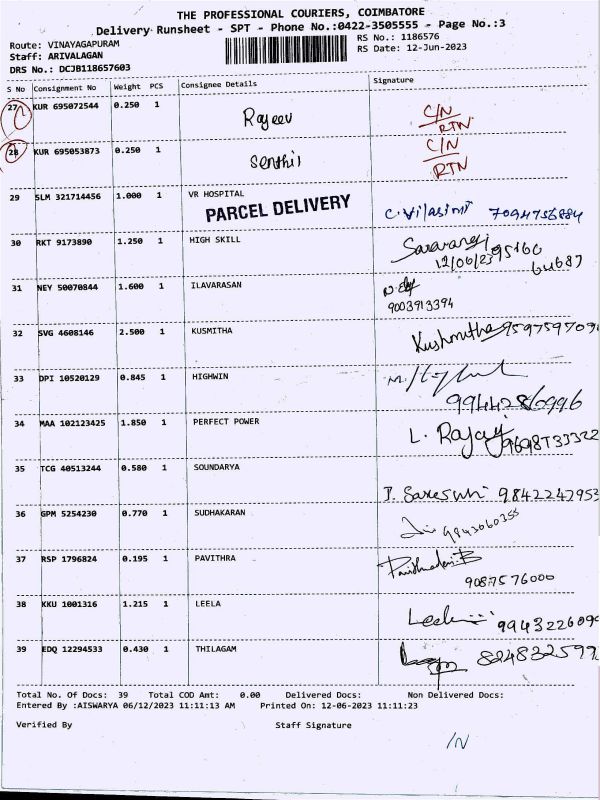 THE PROFESSIONAL COURIERS, COIMBATORE
Delivery Runsheet - SPT - Phone No.:0422-3505555 - Page No.:3
Route: VINAYAGAPURAM RS No.: 1186576
Staff: ARIVALAGAN RS Date: 12-Jun-2023
DRS No.: DCJB118657603
S No Consignment No Weight PCS Consignee Details Signature
27 KUR 695072544 0.250 1 Rajeev C/N RTN
28 KUR 695053873 0.250 1 Senthil C/N RTN
29 SLM 321714456 1.000 1 VR HOSPITAL
PARCEL DELIVERY 7094756884
30 RKT 9173890 1.250 1 HIGH SKILL
12/06/23 95160
64687
31 NEY 50070844 1.600 1 ILAVARASAN
9003913394
32 SVG 4608146 2.500 1 KUSMITHA Kushmitha
33 DPI 10520129 0.845 1 HIGHWIN
34 MAA 102123425 1.850 1 PERFECT POWER L. Rajaj
35 TCG 40513244 0.580 1 SOUNDARYA 9842247953
36 GPM 5254230 0.770 1 SUDHAKARAN 9843060355
37 RSP 1796824 0.195 1 PAVITHRA
9087576000
38 KKU 1001316 1.215 1 LEELA
39 EDQ 12294533 0.430 1 THILAGAM
Total No. Of Docs: 39 Total COD Amt: 0.00 Delivered Docs: Non Delivered Docs:
Entered By :AISWARYA 06/12/2023 11:11:13 AM Printed On: 12-06-2023 11:11:23
Verified By Staff Signature
/N